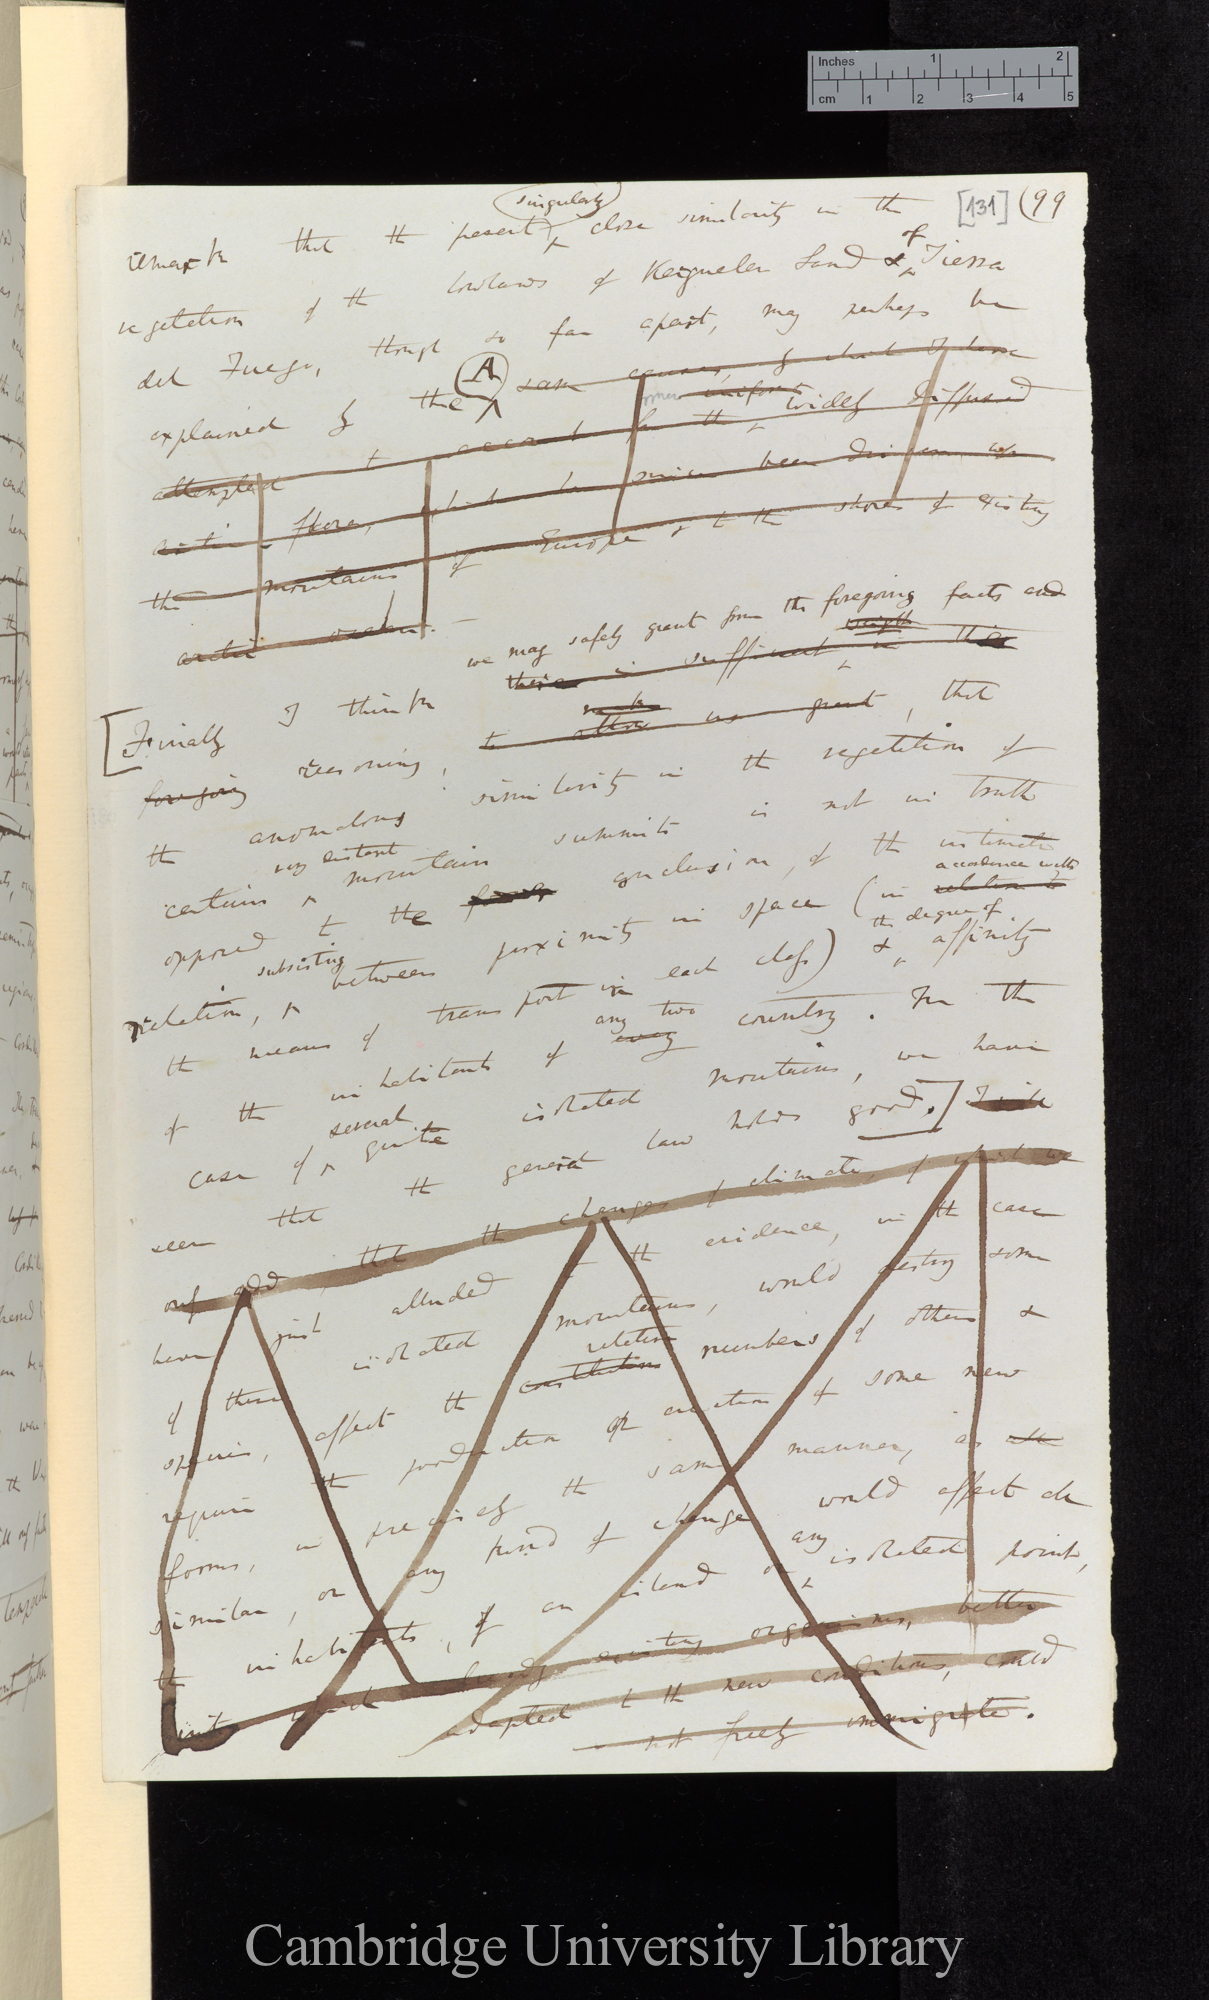 Inches 1 2
cm 1 2 3 4 5
[131] (99
singularly
remark that the present close similarity in the
of
vegetation of the lowlands of Kerguelen Land & Tierra
del Fuego, though so far apart, may perhaps be
A
explained by the same causes, by which I have
uniform
attempted to account for the widely diffused
arctic flora, which has since been driven up
the mountains of Europe & to the shores of existing
arctic
we may safely grant from the foregoing facts and
weight
Finally I think there is sufficient in the
foregoing reasoning, to allow us grant, that
the anomalous similarity in the vegetation of
very distant
certain mountain summits is not in truth
opposed to the conclusion, of the intimate
subsisting
accordance with
relation, between proximity in space (in relation to
the degree of
the means of transport in each class) & affinity
any two
of the inhabitants of every country. In the
several
case of quite isolated mountains, we have
seen that the general law holds good.] I will
only add, that the changes of climate, of which we
have just alluded to the evidence, in the case
of these isolated mountains, would destroy some
relative
species, affect the constitution numbers of others &
require the production or creation of some new
forms, in precisely the same manner, as
similar, or any kind of change would affect
any
the inhabitants, of an island or isolated point,
into which already existing organisms, better
adapted to the new conditions, could
not freely immigrate.
Cambridge University Library